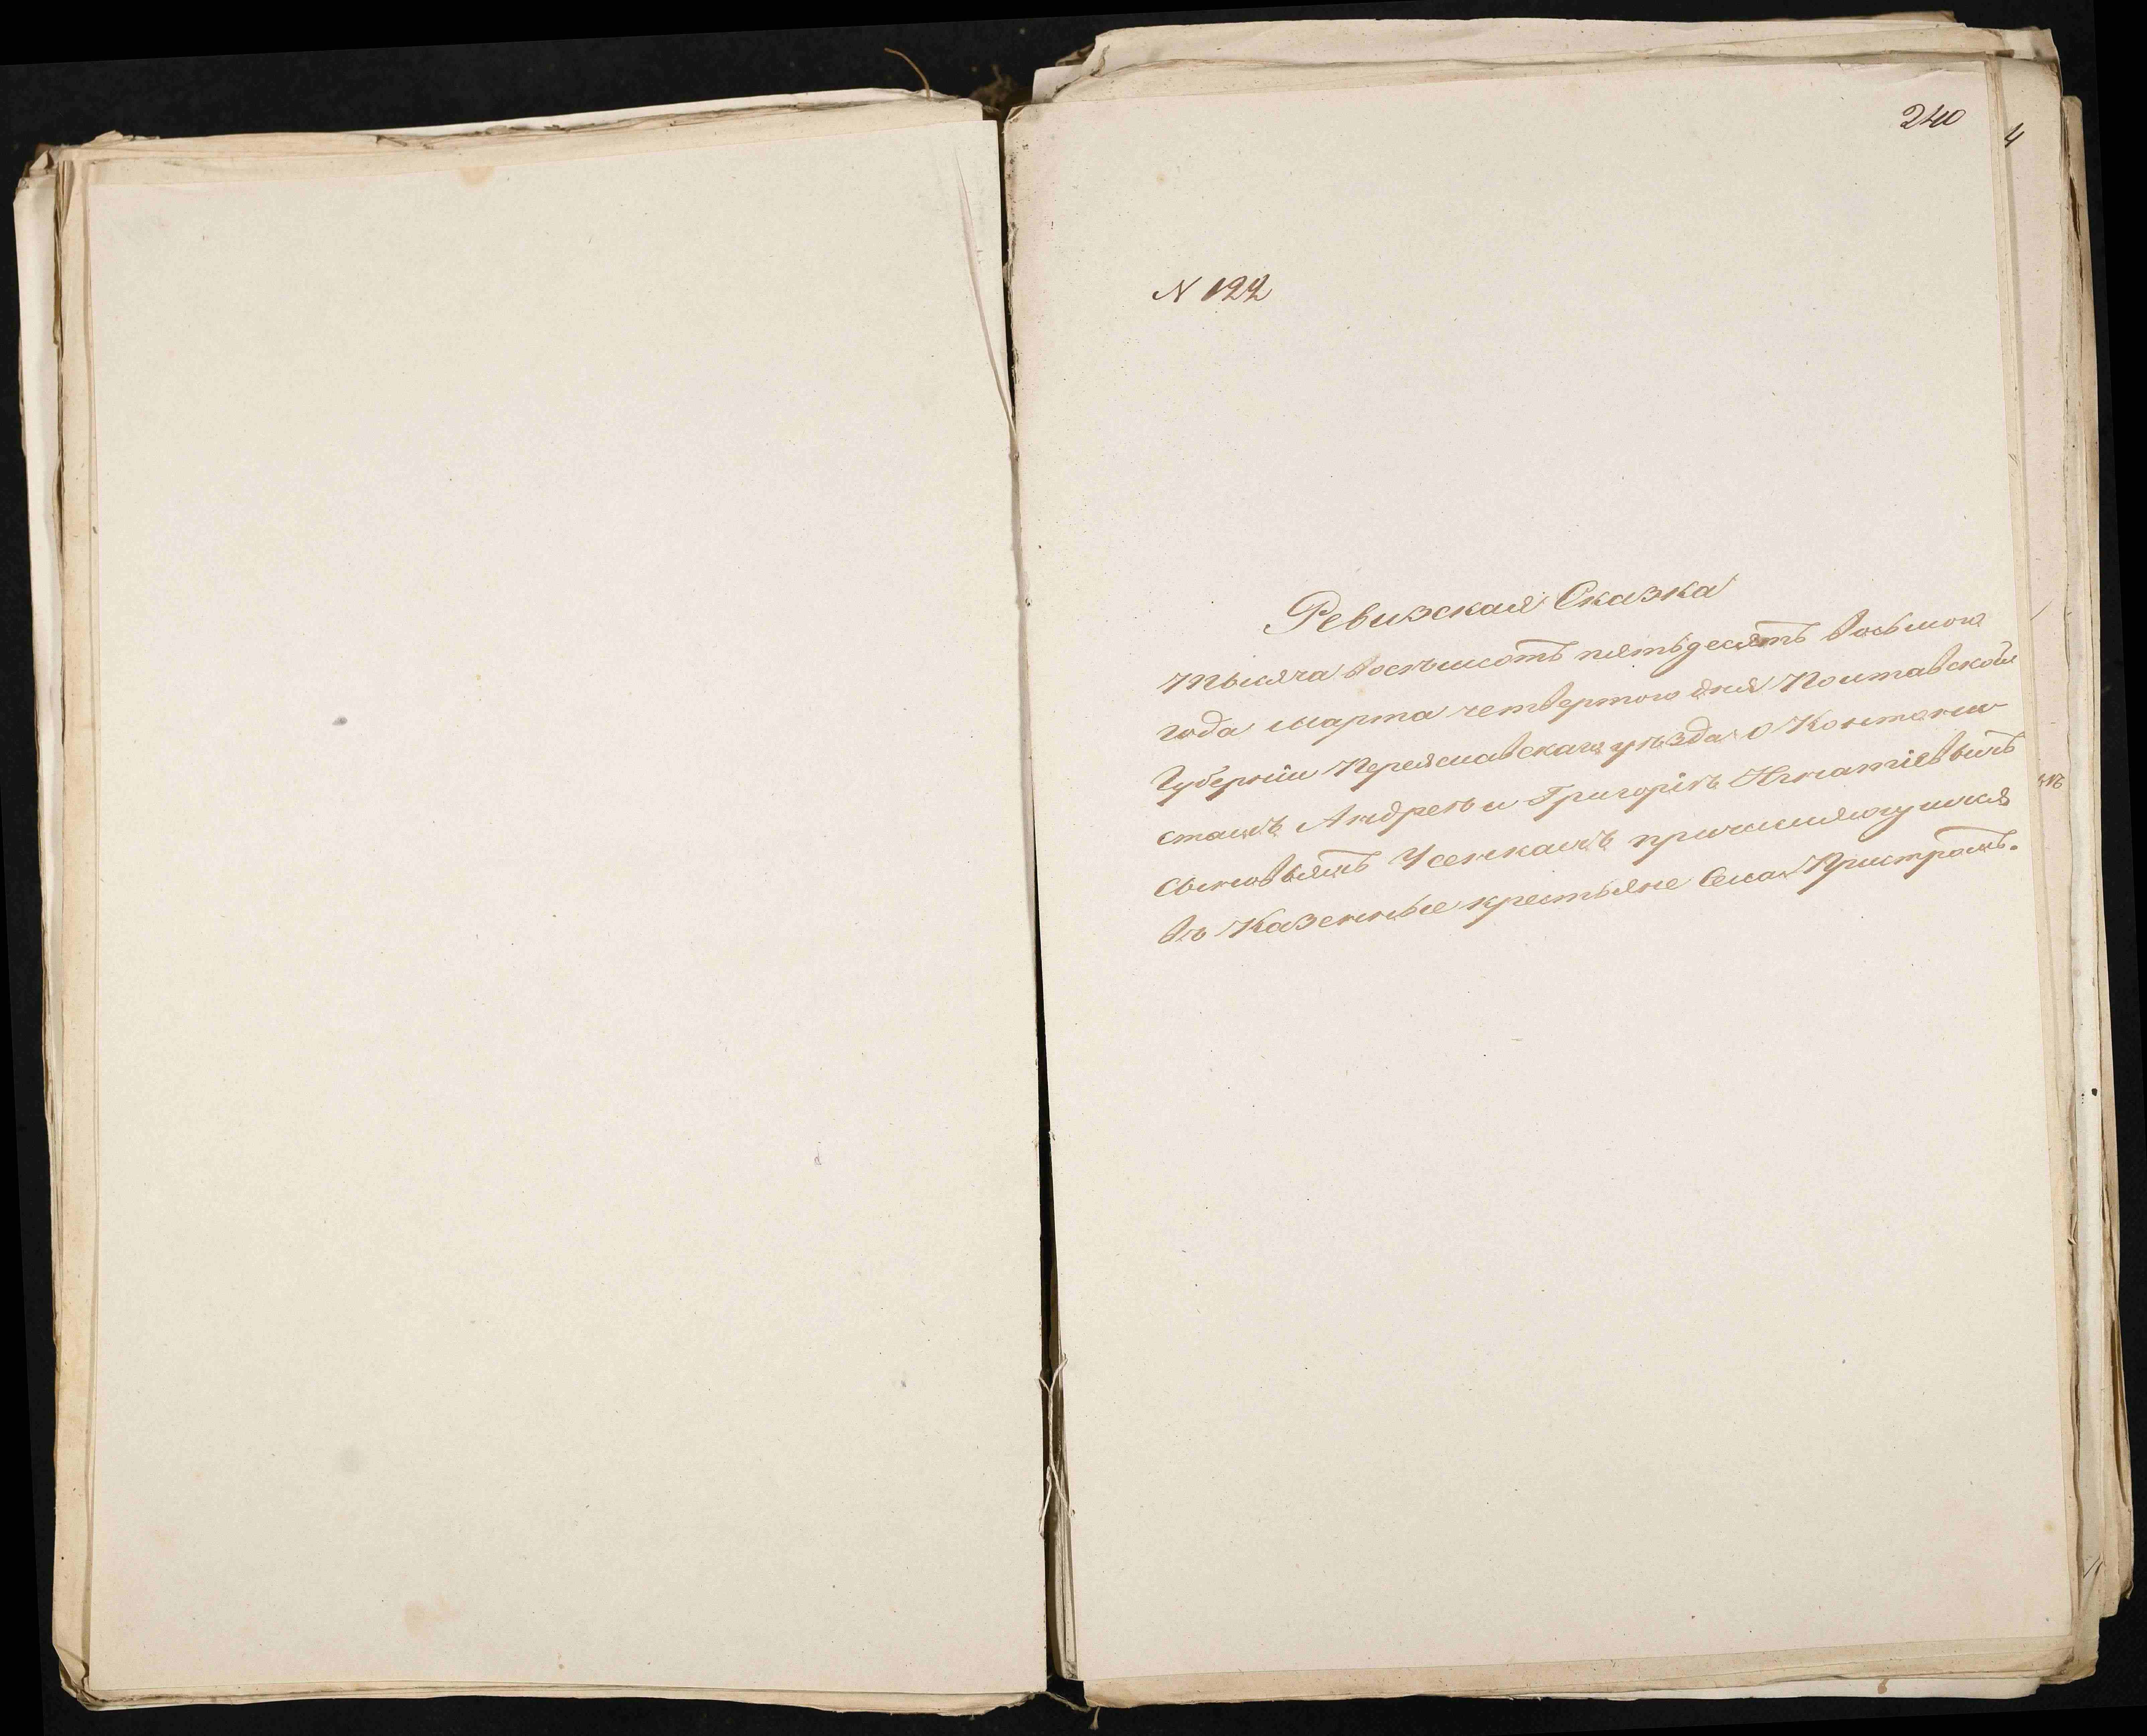 240
4
N 122
Ревизская Сказка
тысяча восемьсотъ пятьдесятъ восьмого
года Марта четвертого дня Полтавской
Губерніи Переяславскаго уѣзда о Контони
стахъ Андреѣ и Григоріѣ Игнатіевыхъ
сыновьяхъ Усенкахъ причисляющихся
въ Казенные крестьяне Села Пристромъ.